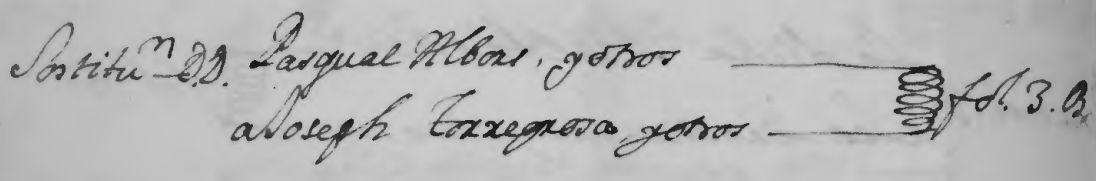 Sostituⁿ D.D. Pasqual Albors, y otros
a Joseph Torregrosa y otros fol. 3. B.